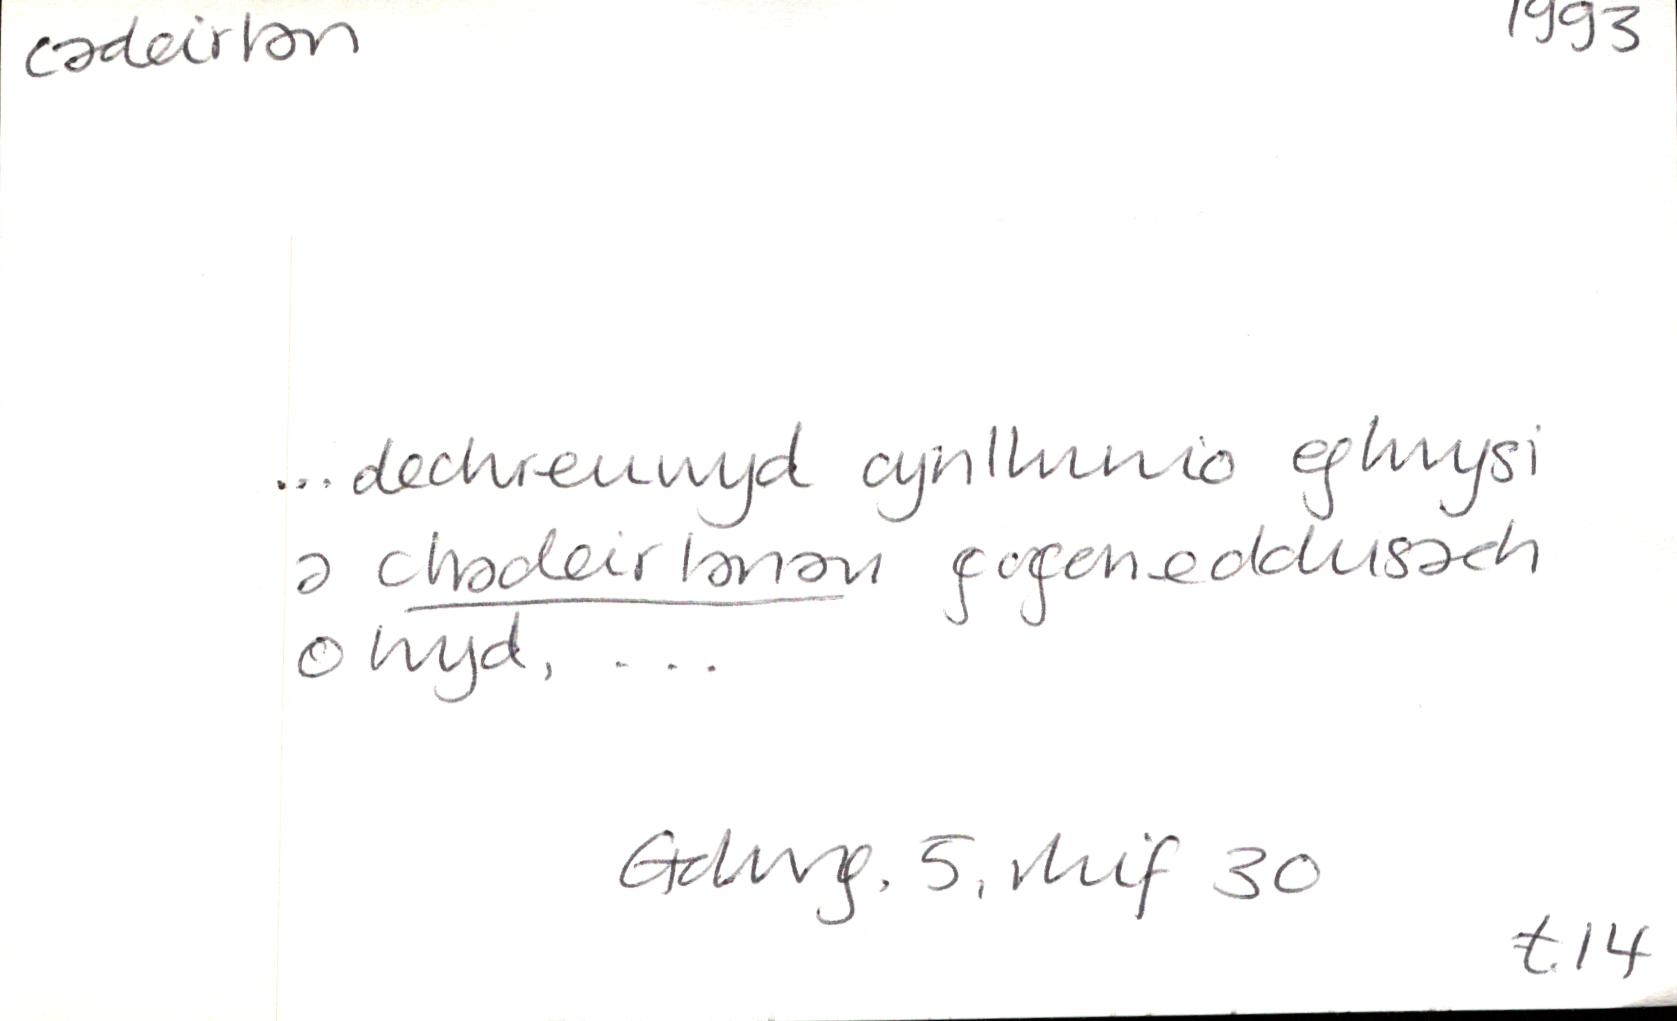 cadeirlan
1993
...dechreuwyd cynllunio eglwysi
a chadeirlanau gogoneddusach
o hyd, ...
Golwg, 5, rhif 30
t.14